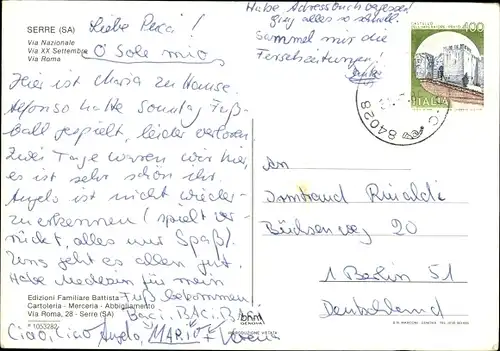 SERRE (SA)
Via Nazionale
Via XX Settembre
Via Roma
Liebe Pexi!
O Sole mio
Hier ist Maria zu Hause.
Alfonso hatte Sonntag Fuß-
ball gespielt leider verloren
Zwei Tage waren wir hier,
es ist sehr schön hier.
Angelo ist nicht wieder-
zuerkennen! spielt ver-
rückt, alles nur Spaß!
Uns geht es allen gut.
Habe Medizin für mein
Fuß bekommen!
Baci, BACi, BA
Ciao, Ciao Angelo, MARIO +
Edizioni Familiare Battista
Cartoleria - Merceria - Abbigliamento
Via Roma, 28 - Serre (SA)
P 1053282
Habe Adressbuch vergessen
ging alles so schnell.
Sammel mir die
Fernsehzeitungen!
Danke
400
ITALIA
84028
An
Irmtraud Rinaldi
Büchsenweg 20
1 Berlin 51
Deutschland